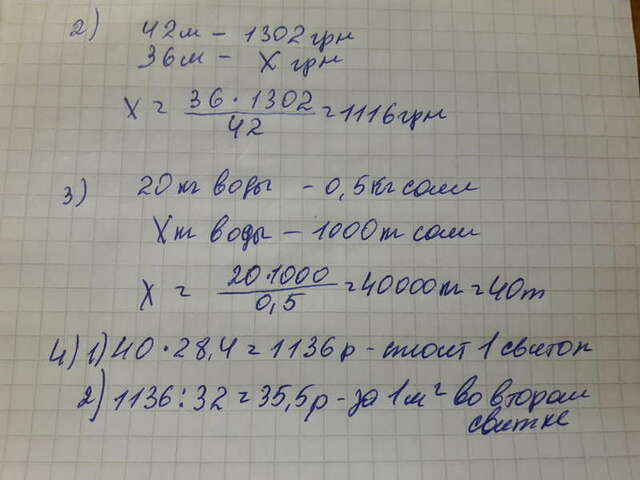 2) 42м - 1302грн
36м - X грн
X = 36 · 1302 / 42 = 1116грн
3) 20кг воды - 0,5кг соли
Xт воды - 1000т соли
X = 20·1000 / 0,5 = 40000т = 40т
4) 1) 40 · 28,4 = 1136р - стоит 1 свиток
2) 1136 : 32 = 35,5р - за 1м² во втором
свитке